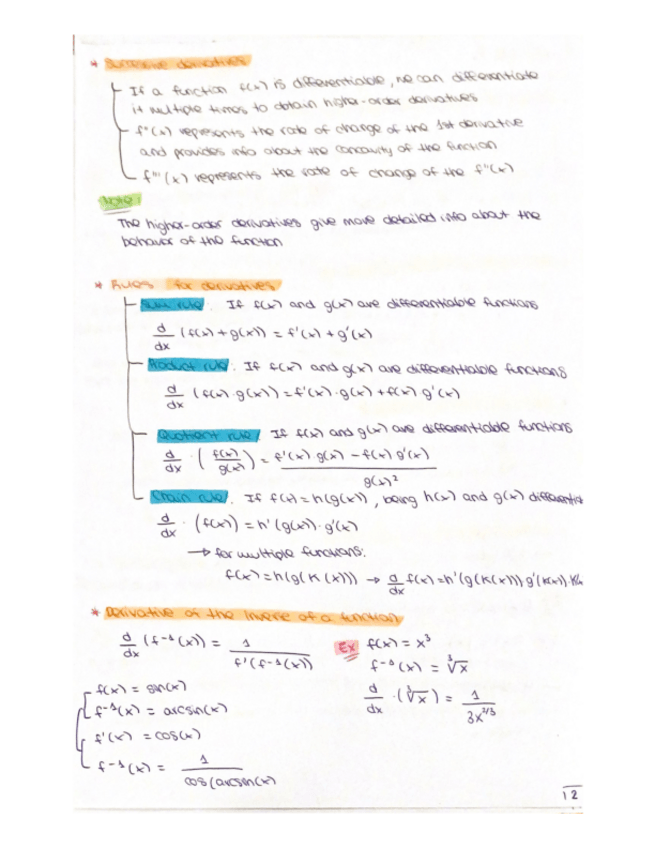 * Successive derivatives
If a function f(x) is differentiable, we can differentiate
it multiple times to obtain higher-order derivatives
f''(x) represents the rate of change of the 1st derivative
and provides info about the concavity of the function
f'''(x) represents the rate of change of the f''(x)
Note:
The higher-order derivatives give more detailed info about the
behavior of the function
* Rules for derivatives
Sum rule: If f(x) and g(x) are differentiable functions
d/dx (f(x)+g(x)) = f'(x)+g'(x)
Product rule: If f(x) and g(x) are differentiable functions
d/dx (f(x)·g(x)) = f'(x)·g(x)+f(x) g'(x)
Quotient rule: If f(x) and g(x) are differentiable functions
d/dx · (f(x)/g(x)) = f'(x) g(x) - f(x) g'(x) / g(x)²
Chain rule: If f(x) = h(g(x)), being h(x) and g(x) differentia
d/dx · (f(x)) = h'(g(x))·g'(x)
→ for multiple functions:
f(x) = h(g(k(x))) → d/dx f(x) = h'(g(k(x))) g'(k(x))
* Derivative of the Inverse of a function
d/dx (f⁻¹(x)) = 1 / f'(f⁻¹(x))
Ex f(x) = x³
f⁻¹(x) = ³√x
d/dx · (³√x) = 1 / 3x^2/3
f(x) = sin(x)
f⁻¹(x) = arcsin(x)
f'(x) = cos(x)
f⁻¹(x) = 1 / cos(arcsin(x)
12